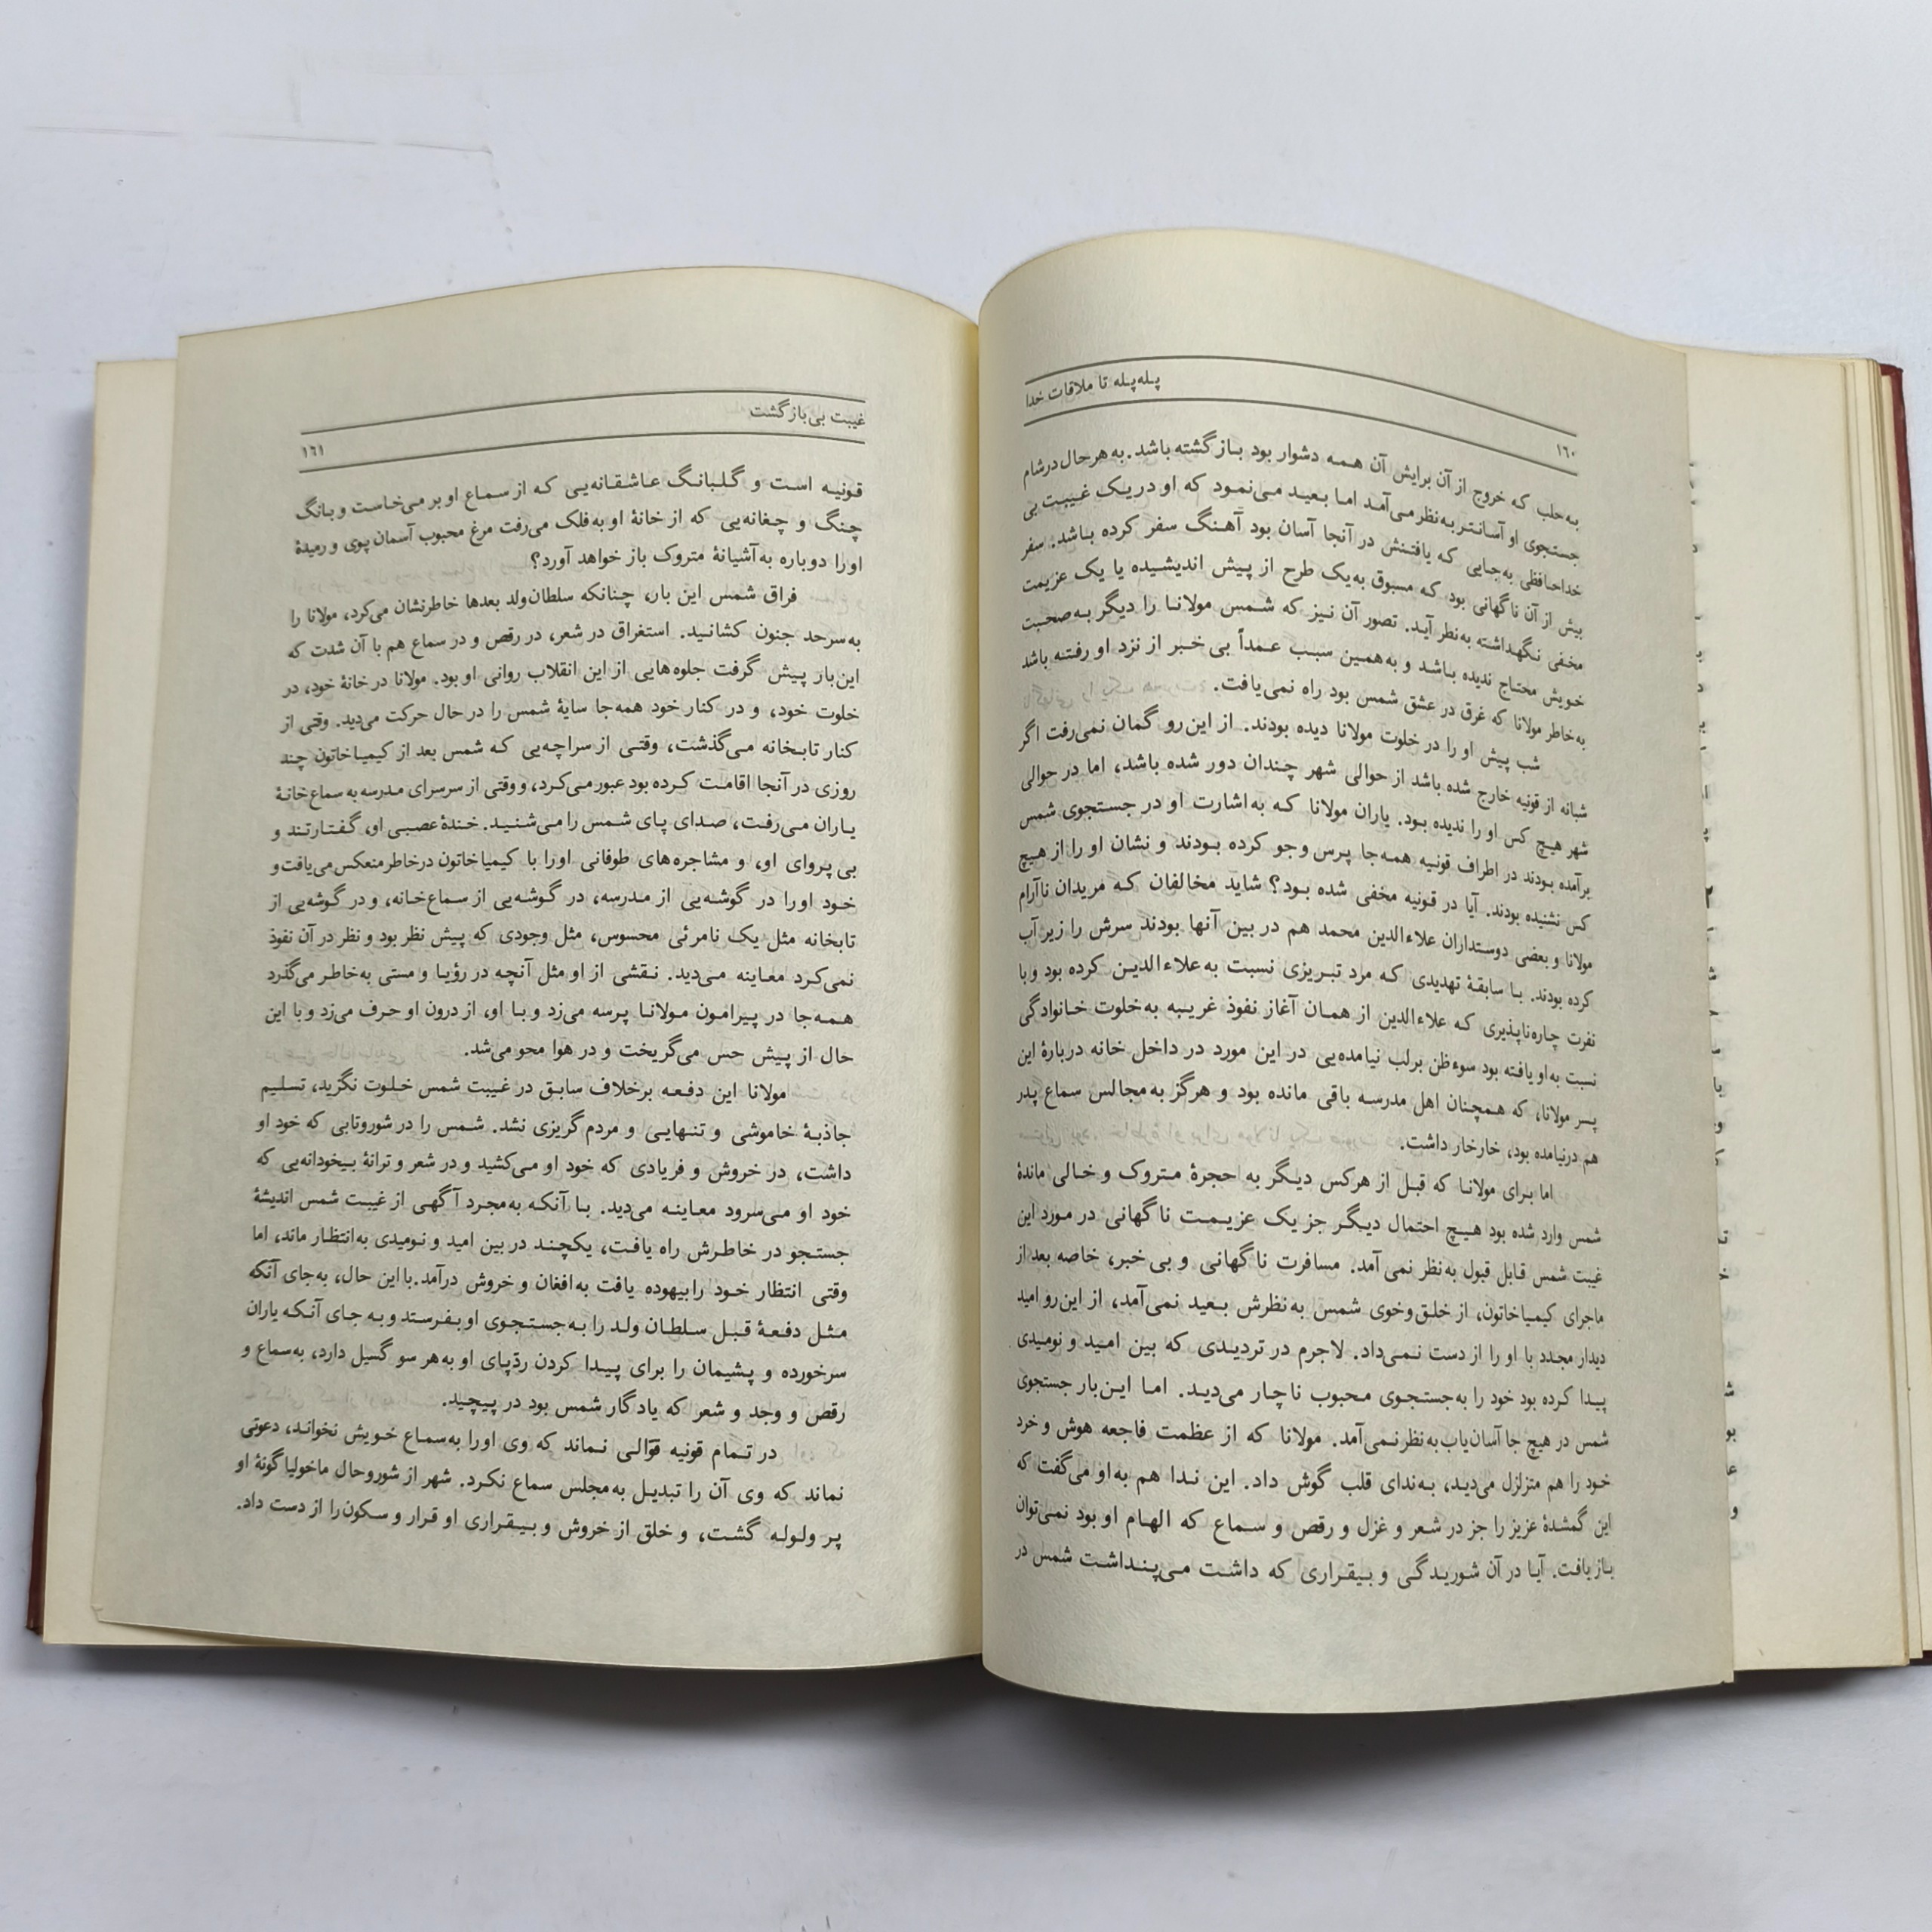 پله‌پله تا ملاقات خدا
۱۶۰
به‌حلب که خروج از آن برایش آن همه دشوار بود بازگشته باشد. به هرحال درشام
جستجوی او آسانتر به‌نظر می‌آمد اما بعید می‌نمود که او دریک غیبت بی
خداحافظی به‌جایی که یافتنش در آنجا آسان بود آهنگ سفر کرده باشد. سفر
بیش از آن ناگهانی بود که مسبوق به‌یک طرح از پیش اندیشیده یا یک عزیمت
مخفی نگهداشته به‌نظر آید. تصور آن نیز که شمس مولانا را دیگر به‌صحبت
خویش محتاج ندیده باشد و به‌همین سبب عمداً بی خبر از نزد او رفته باشد
به‌خاطر مولانا که غرق در عشق شمس بود راه نمی‌یافت.
شب پیش او را در خلوت مولانا دیده بودند. از این‌رو گمان نمی‌رفت اگر
شبانه از قونیه خارج شده باشد از حوالی شهر چندان دور شده باشد، اما در حوالی
شهر هیچ کس او را ندیده بود. یاران مولانا که به‌اشارت او در جستجوی شمس
برآمده بودند در اطراف قونیه همه‌جا پرس وجو کرده بودند و نشان او را از هیچ
کس نشنیده بودند. آیا در قونیه مخفی شده بود؟ شاید مخالفان که مریدان ناآرام
مولانا و بعضی دوستداران علاءالدین محمد هم در بین آنها بودند سرش را زیر آب
کرده بودند. با سابقهٔ تهدیدی که مرد تبریزی نسبت به علاءالدین کرده بود و با
نفرت چاره‌ناپذیری که علاءالدین از همان آغاز نفوذ غریبه به‌خلوت خانوادگی
نسبت به‌او یافته بود سوءظن برلب نیامده‌یی در این مورد در داخل خانه دربارهٔ این
پسر مولانا، که همچنان اهل مدرسه باقی مانده بود و هرگز به‌مجالس سماع پدر
هم درنیامده بود، خارخار داشت.
اما برای مولانا که قبل از هرکس دیگر به حجرهٔ متروک و خالی ماندهٔ
شمس وارد شده بود هیچ احتمال دیگر جز یک عزیمت ناگهانی در مورد این
غیبت شمس قابل قبول به‌نظر نمی‌آمد. مسافرت ناگهانی و بی‌خبر، خاصه بعد از
ماجرای کیمیاخاتون، از خلق‌وخوی شمس به‌نظرش بعید نمی‌آمد، از این‌رو امید
دیدار مجدد با او را از دست نمی‌داد. لاجرم در تردیدی که بین امید و نومیدی
پیدا کرده بود خود را به‌جستجوی محبوب ناچار می‌دید. اما این‌بار جستجوی
شمس در هیچ جا آسان‌یاب به نظر نمی‌آمد. مولانا که از عظمت فاجعه هوش و خرد
خود را هم متزلزل می‌دید، به‌ندای قلب گوش داد. این ندا هم به‌او می‌گفت که
این گمشدهٔ عزیز را جز در شعر و غزل و رقص و سماع که الهام او بود نمی‌توان
بازیافت. آیا در آن شوریدگی و بیقراری که داشت می‌پنداشت شمس در
غیبت بی‌بازگشت
۱۶۱
قونیه است و گلبانگ عاشقانه‌یی که از سماع او بر می‌خاست و بانگ
چنگ و چغانه‌یی که از خانهٔ او به‌فلک می‌رفت مرغ محبوب آسمان پوی و رمیدهٔ
او را دوباره به‌آشیانهٔ متروک باز خواهد آورد؟
فراق شمس این بار، چنانکه سلطان‌ولد بعدها خاطرنشان می‌کرد، مولانا را
به‌سرحد جنون کشانید. استغراق در شعر، در رقص و در سماع هم با آن شدت که
این‌بار پیش گرفت جلوه‌هایی از این انقلاب روانی او بود. مولانا در خانهٔ خود، در
خلوت خود، و در کنار خود همه‌جا سایهٔ شمس را در حال حرکت می‌دید. وقتی از
کنار تابخانه می‌گذشت، وقتی از سراچه‌یی که شمس بعد از کیمیاخاتون چند
روزی در آنجا اقامت کرده بود عبور می‌کرد، و وقتی از سرسرای مدرسه به سماع خانهٔ
یاران می‌رفت، صدای پای شمس را می‌شنید. خندهٔ عصبی او، گفتار تند و
بی پروای او، و مشاجره‌های طوفانی او را با کیمیاخاتون درخاطر منعکس می‌یافت و
خود او را در گوشه‌یی از مدرسه، در گوشه‌یی از سماع‌خانه، و در گوشه‌یی از
تابخانه مثل یک نامرئی محسوس، مثل وجودی که پیش نظر بود و نظر در آن نفوذ
نمی‌کرد معاینه می‌دید. نقشی از او مثل آنچه در رؤیا و مستی به‌خاطر می‌گذرد
همه‌جا در پیرامون مولانا پرسه می‌زد و با او، از درون او حرف می‌زد و با این
حال از پیش حس می‌گریخت و در هوا محو می‌شد.
مولانا این دفعه برخلاف سابق در غیبت شمس خلوت نگزید، تسلیم
جاذبهٔ خاموشی و تنهایی و مردم گریزی نشد. شمس را در شوروتابی که خود او
داشت، در خروش و فریادی که خود او می‌کشید و در شعر و ترانهٔ بیخودانه‌یی که
خود او می‌سرود معاینه می‌دید. با آنکه به‌مجرد آگهی از غیبت شمس اندیشهٔ
جستجو در خاطرش راه یافت، یکچند در بین امید و نومیدی به‌انتظار ماند، اما
وقتی انتظار خود را بیهوده یافت به‌افغان و خروش درآمد. با این حال، به‌جای آنکه
مثل دفعهٔ قبل سلطان ولد را به‌جستجوی او بفرستد و به جای آنکه یاران
سرخورده و پشیمان را برای پیدا کردن ردّپای او به‌هر سو گسیل دارد، به‌سماع و
رقص و وجد و شعر که یادگار شمس بود در پیچید.
در تمام قونیه قوّالی نماند که وی او را به‌سماع خویش نخواند، دعوتی
نماند که وی آن را تبدیل به‌مجلس سماع نکرد. شهر از شوروحال ماخولیاگونهٔ او
پر ولوله گشت، و خلق از خروش و بیقراری او قرار و سکون را از دست داد.